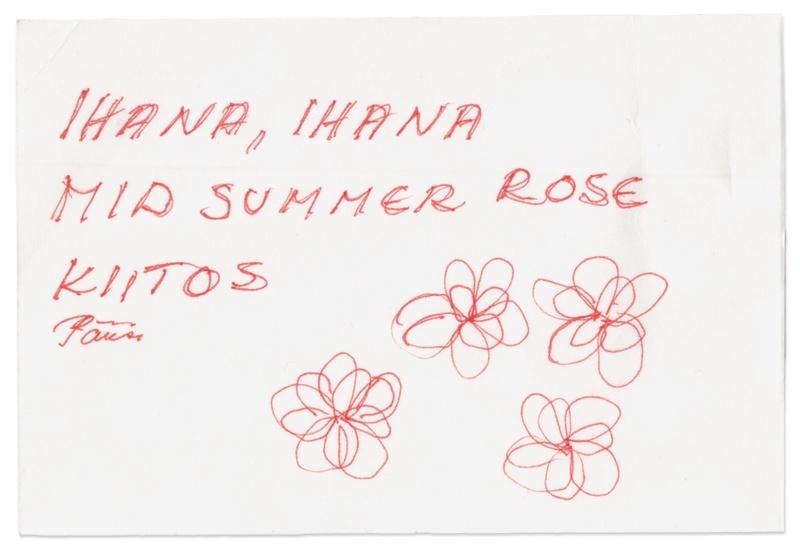 IHANA, IHANA
MID SUMMER ROSE
KIITOS